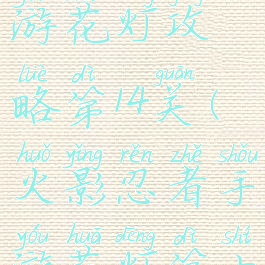 游花灯攻
lüè dì guān
略第14关(
huǒ yǐng rěn zhě shǒu
火影忍者手
yóu huā dēng dì shí
游花灯第十